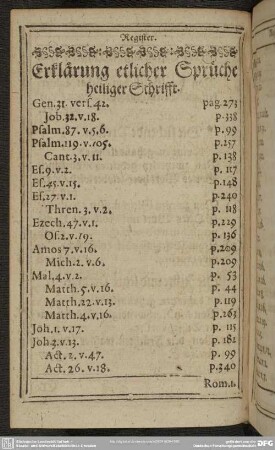 Register.
Erklärung etlicher Sprüche
heiliger Schrifft.
Gen. 31. vers. 42. pag. 273
Job. 32. v. 18. p. 338
Psalm. 87. v. 5. 6. p. 99
Psalm. 119. v. 105. p. 257
Cant. 3, v. 11. p. 138
Es. 9. v. 2. p. 117
Es. 45. v. 15. p. 148
Es. 27. v. 1. p. 240
Thren. 3. v. 2. p. 118
Ezech. 47. v. 1. p. 219
Os. 2. v. 19. p. 136
Amos 7. v. 16. p. 209
Mich. 2. v. 6. p. 209
Mal. 4. v. 2. p. 53
Matth. 5. v. 16. p. 44
Matth. 22. v. 13. p. 119
Matth. 4. v. 16. p. 263
Joh. 1. v. 17. p. 115
Joh. 2. v. 13. p. 182
Act. 2. v. 47. p. 99
Act. 26. v. 18. p. 340
Rom. 1.
DFG